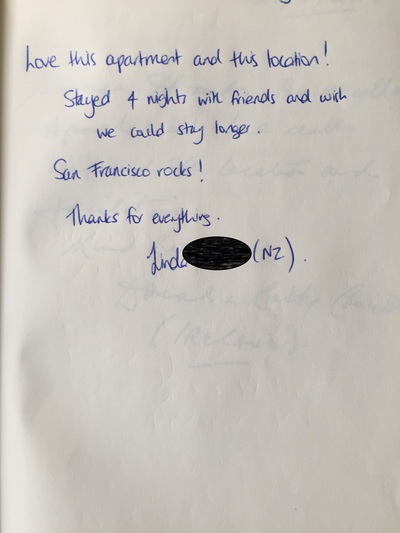 Love this apartment and this location!
Stayed 4 nights with friends and wish
we could stay longer.
San Francisco rocks!
Thanks for everything.
Linda (NZ).
(IRELAND).